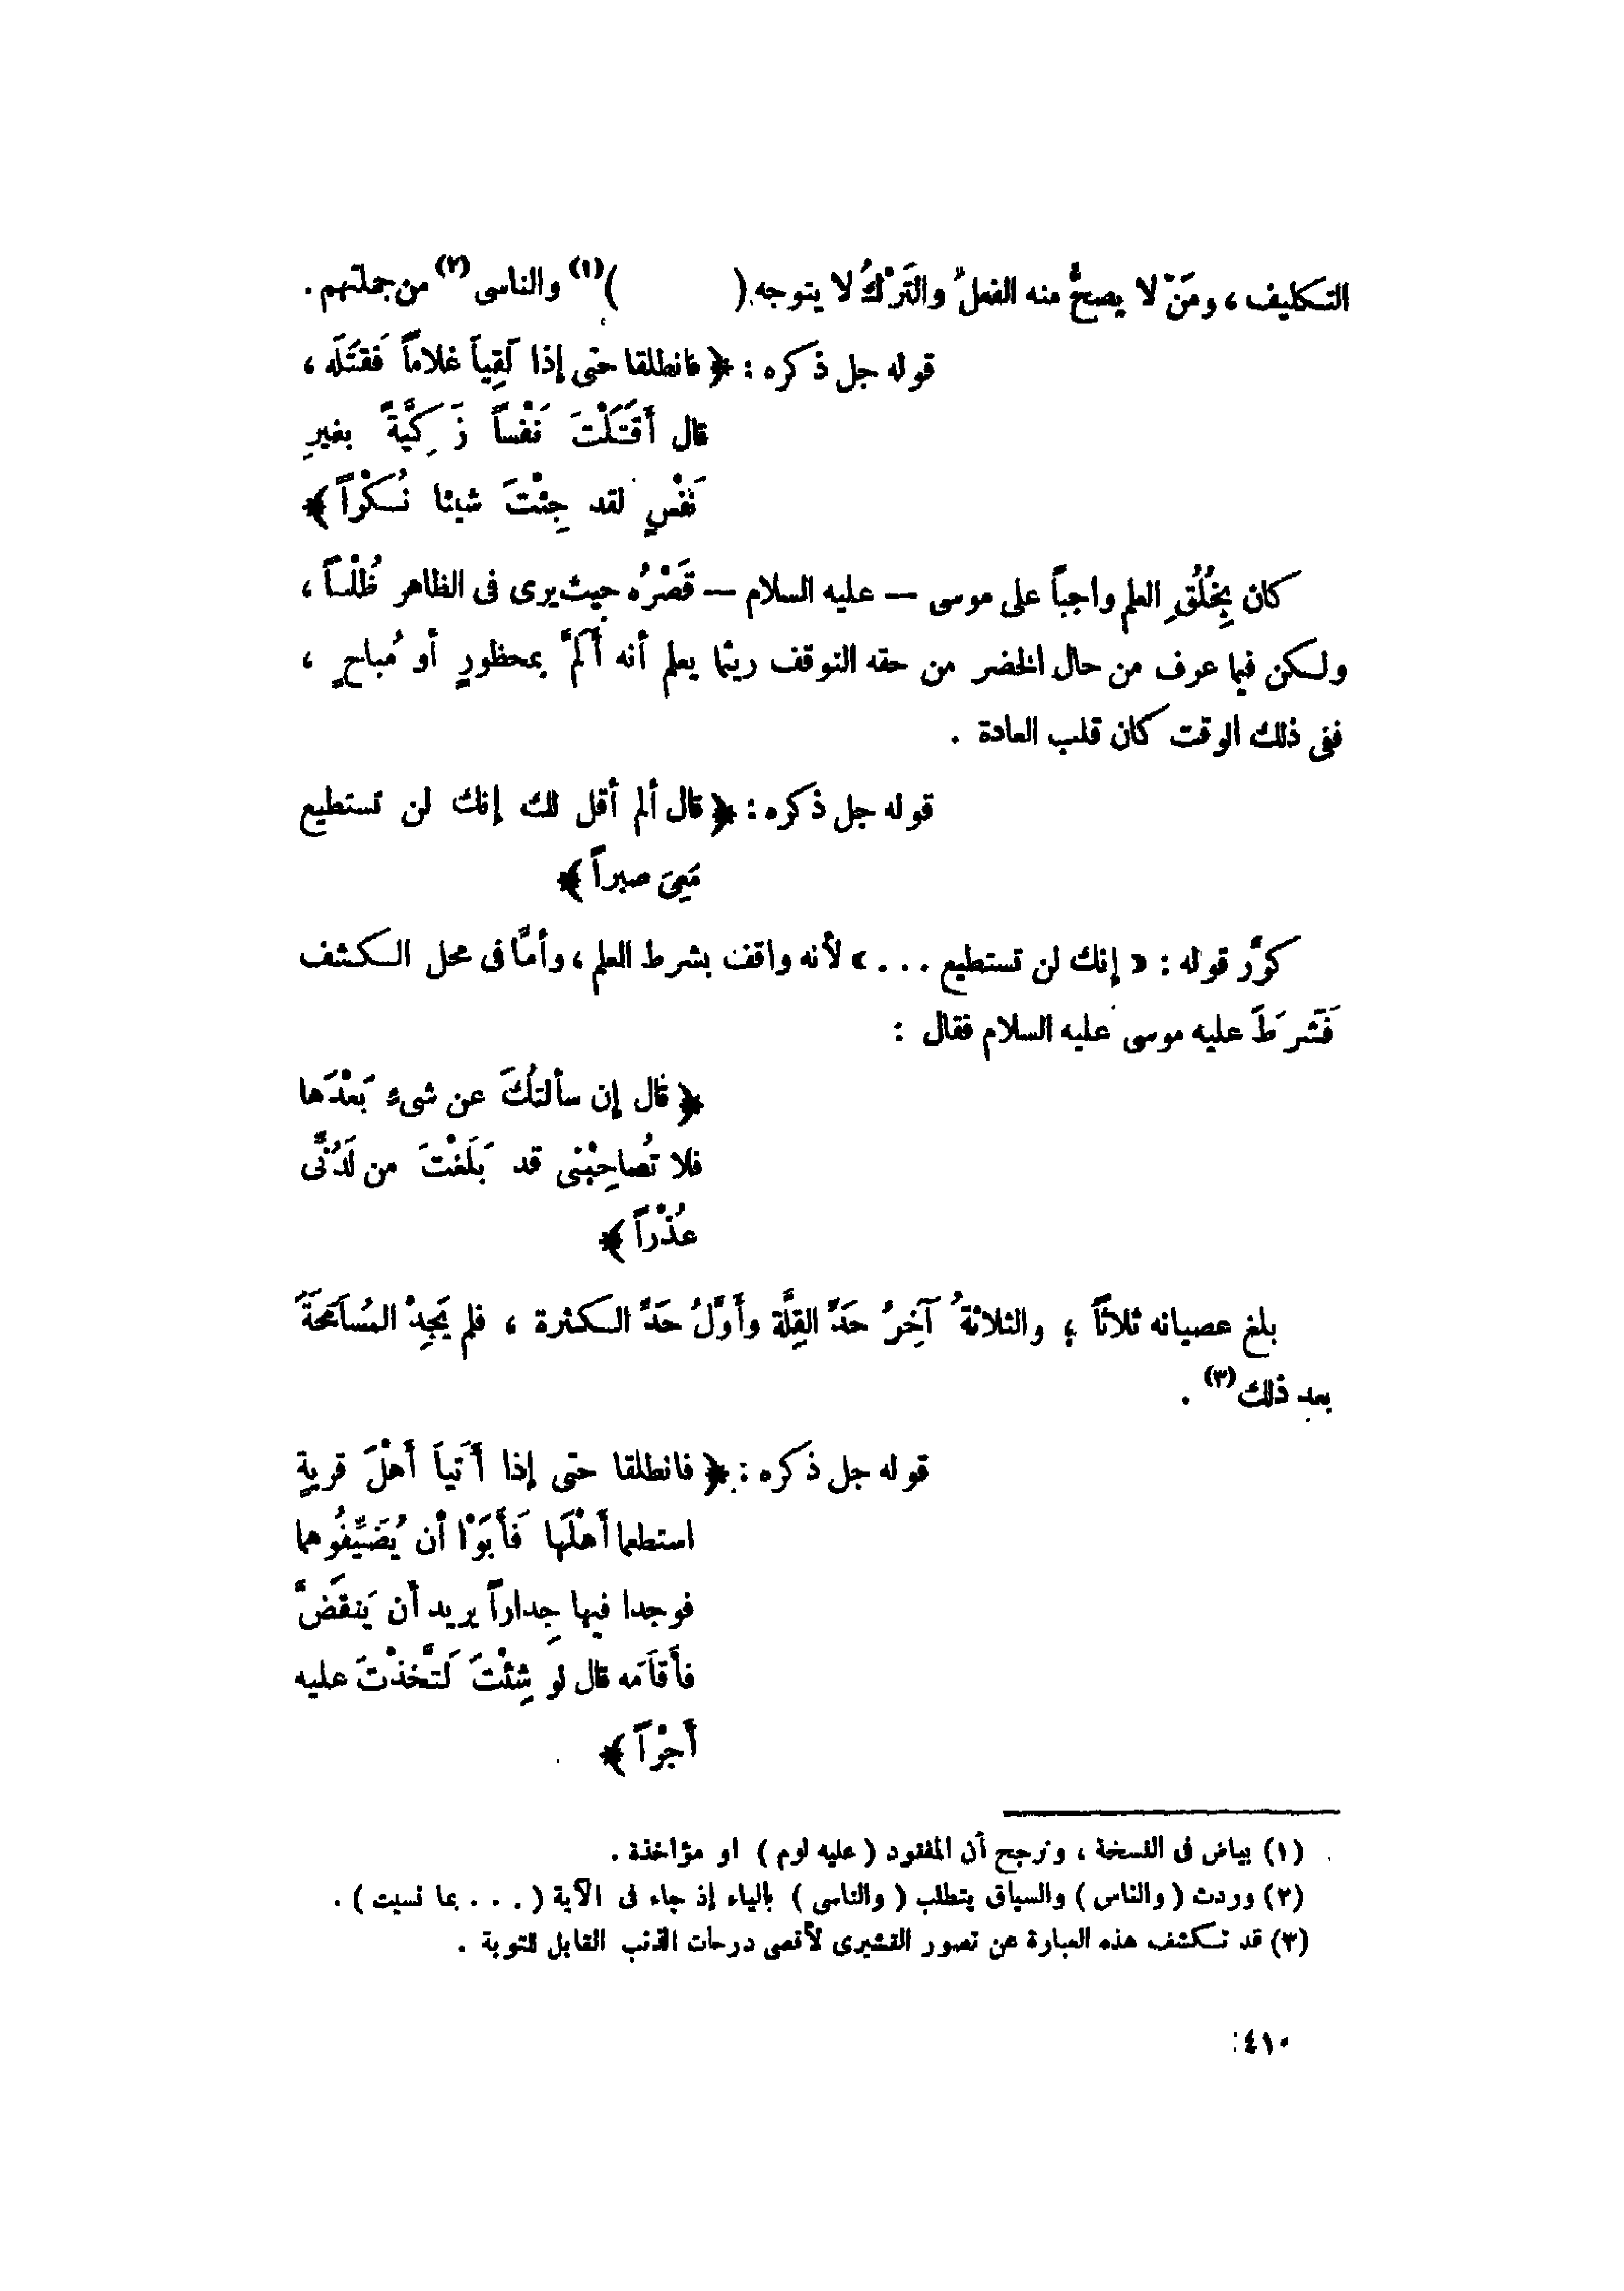 التكليف ، ومَنْ لا يصحُّ منه الفعلُ والتَرْكُ لا يتوجه ( )(١) والناسى (٢) من جملتهم .
قوله جل ذكره : ﴿ فانطلقا حتى إذا لَقِيَا غلاماً فَقَتَلَه ،
قال أَقَتَلْتَ نَفْساً زَكِيَّةً بغيرِ
نَفْسٍ لقد جِئْتَ شيئا نُكْراً ﴾
كان بِخُلُقِ العلم واجباً على موسى — عليه السلام — قَصْرُه حيث يرى فى الظاهر ظُلْماً ،
ولكن فيما عرف من حال الخضر من حقه التوقف ريثما يعلم أنه أَلَمَّ بمحظورٍ أو مُباحٍ ،
ففى ذلك الوقت كان قلب العادة .
قوله جل ذكره : ﴿ قال ألم أقل لك إنك لن تستطيع
مَعِىَ صبراً ﴾
كرَّر قوله : « إنك لن تستطيع . . . » لأنه واقف بشرط العلم ، وأمَّا فى محل الكشف
فَشَرَطَ عليه موسى عليه السلام فقال :
﴿ قال إن سألتُكَ عن شىءٍ بَعْدَها
فلا تُصاحِبْنى قد بَلَغْتَ من لَدُنِّى
عُذْراً ﴾
بلغ عصيانه ثلاثاً ؛ والثلاثةُ آخِرُ حَدِّ القِلَّة وأَوَّلُ حَدِّ الكثرة ، فلم يَجِدْ المُسامَحَةَ
بعد ذلك(٣) .
قوله جل ذكره : ﴿ فانطلقا حتى إذا أَتَيا أَهْلَ قريةٍ
استطعما أَهْلَها فَأَبَوْا أن يُضَيِّفُوهما
فوجدا فيها جِداراً يريد أن يَنقَضَّ
فأَقَامَه قال لو شِئْتَ لَتَّخَذْتَ عليه
أَجْراً ﴾
(١) بياض فى النسخة ، ونرجح أن المفقود ( عليه لوم ) او مؤاخذة .
(٢) وردت ( والناس ) والسياق يتطلب ( والناسى ) بالياء إذ جاء فى الآية ( . . . بما نسيت ) .
(٣) قد تكشف هذه العبارة عن تصور القشيرى لأقصى درجات الذنب القابل للتوبة .
٤١٠